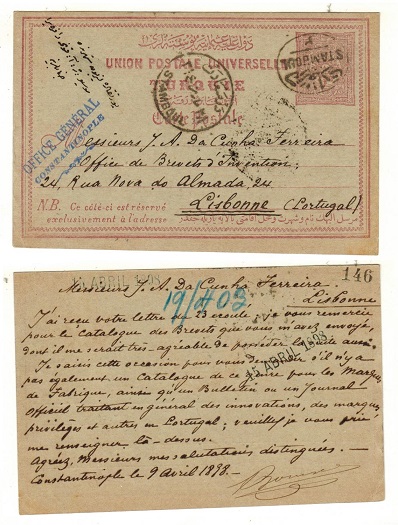 دولت عليه عثمانيه
UNION POSTALE UNIVERSELLE
TURQUIE
Carte Postale
STAMBOUL
STAMBOUL
OFFICE GÉNÉRAL
CONSTANTINOPLE
Messieurs J. A. Da Cunha Ferreira
Office de Brevets d'Invention
24, Rua Nova do Almada, 24
Lisbonne (Portugal)
N.B. Ce côté-ci est réservé
exclusivement à l'adresse
15 ABRIL 1903
146
Messieurs J. A. Da Cunha Ferreira
Lisbonne
19/4 03
J'ai reçu votre lettre du 23 écoulé, je vous remercie
pour le Catalogue des Brevets que vous m'avez envoyé,
dont il me serait très-agréable de posséder la suite aussi.
15 ABRIL 1903
Je saisis cette occasion pour vous s'il n'y a
pas également un Catalogue de ce genre pour les Marques
de Fabrique, ainsi qu'un Bulletin ou un Journal
Officiel traitant en général des innovations, des marques
privilèges et autres en Portugal; veuillez je vous prie
me renseigner là-dessus.
Agréez, Messieurs mes salutations distinguées. —
Constantinople le 9 Avril 1898.